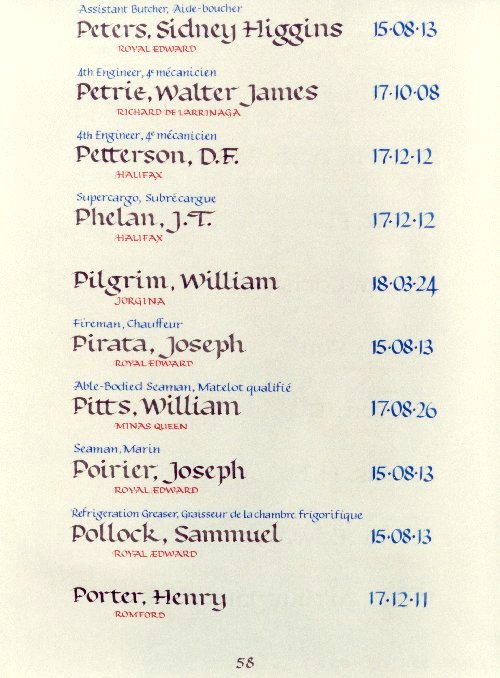 Assistant Butcher, Aide-boucher
Peters, Sidney Higgins 15·08·13
ROYAL EDWARD
4th Engineer, 4e mécanicien
Petrie, Walter James 17·10·08
RICHARD DE LARRINAGA
4th Engineer, 4e mécanicien
Petterson, D.F. 17·12·12
HALIFAX
Supercargo, Subrécargue
Phelan, J.T. 17·12·12
HALIFAX
Pilgrim, William 18·03·24
JORGINA
Fireman, Chauffeur
Pirata, Joseph 15·08·13
ROYAL EDWARD
Able-Bodied Seaman, Matelot qualifié
Pitts, William 17·08·26
MINAS QUEEN
Seaman, Marin
Poirier, Joseph 15·08·13
ROYAL EDWARD
Refrigeration Greaser, Graisseur de la chambre frigorifique
Pollock, Sammuel 15·08·13
ROYAL EDWARD
Porter, Henry 17·12·11
ROMFORD
58